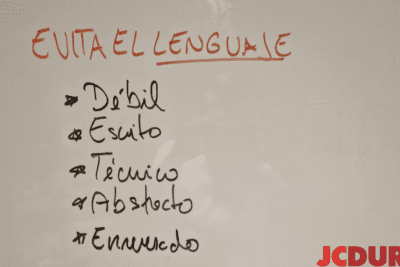 EVITA EL LENGUAJE
* Débil
* Escrito
* Técnico
* Abstracto
* Enrevesado
JCDUR